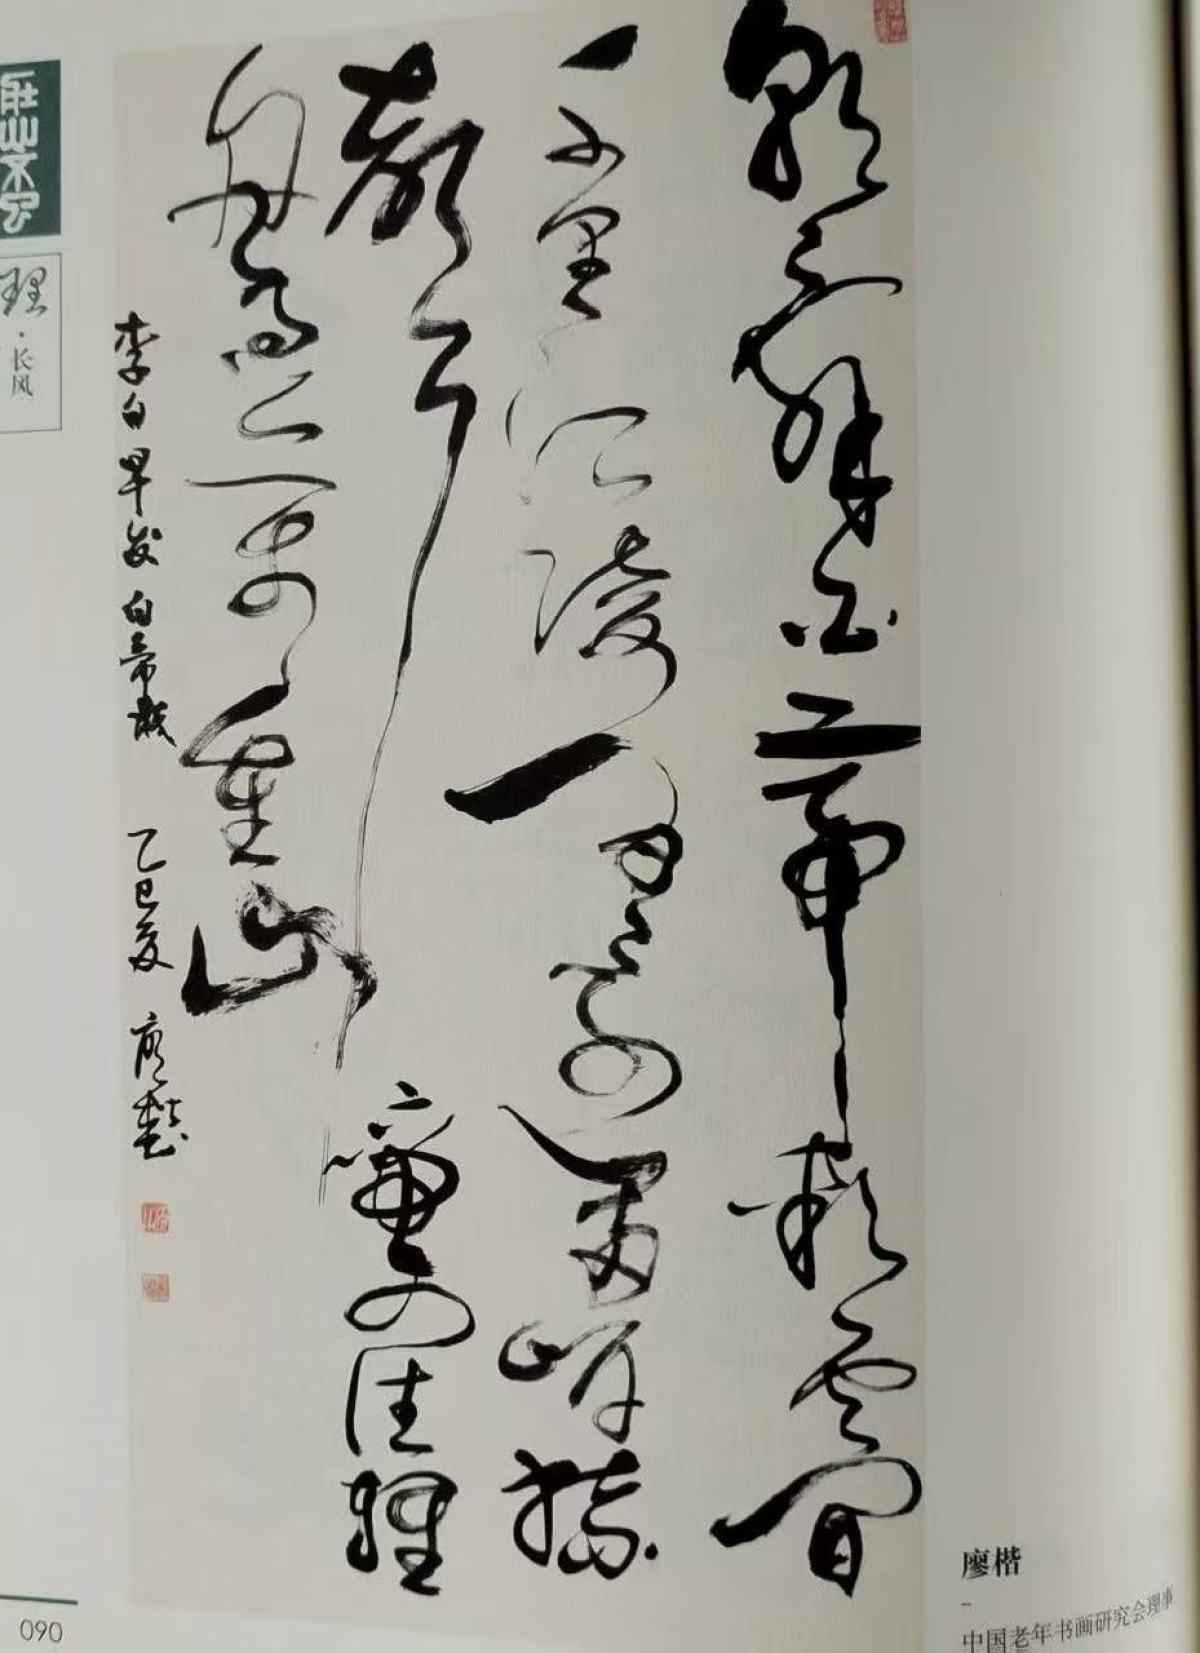 朝辭白帝彩雲間
千里江陵一日還兩岸猿
聲啼不住輕
舟已過万重山
李白早发白帝城 乙巳夏 廖楷
理·长风
090
廖楷
中国老年书画研究会理事